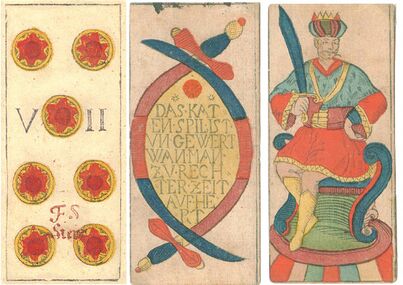 V II
F. S
DAS KAT
EN SPIL IST
VNGEWERT
WANMAN
ZV RECH
TER ZEIT
AVFHE
RT